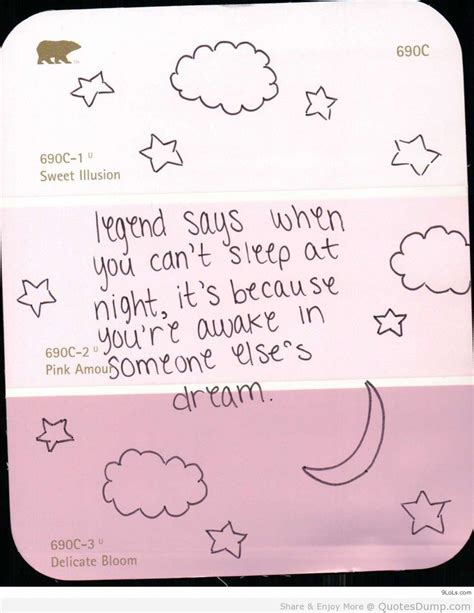 690C
690C-1 U
Sweet Illusion
legend says when
you can't sleep at
night, it's because
you're awake in
690C-2 U
someone else's
Pink Amour
dream.
690C-3 U
Delicate Bloom
9LoLs.com
Share & Enjoy More @ QuotesDump.com